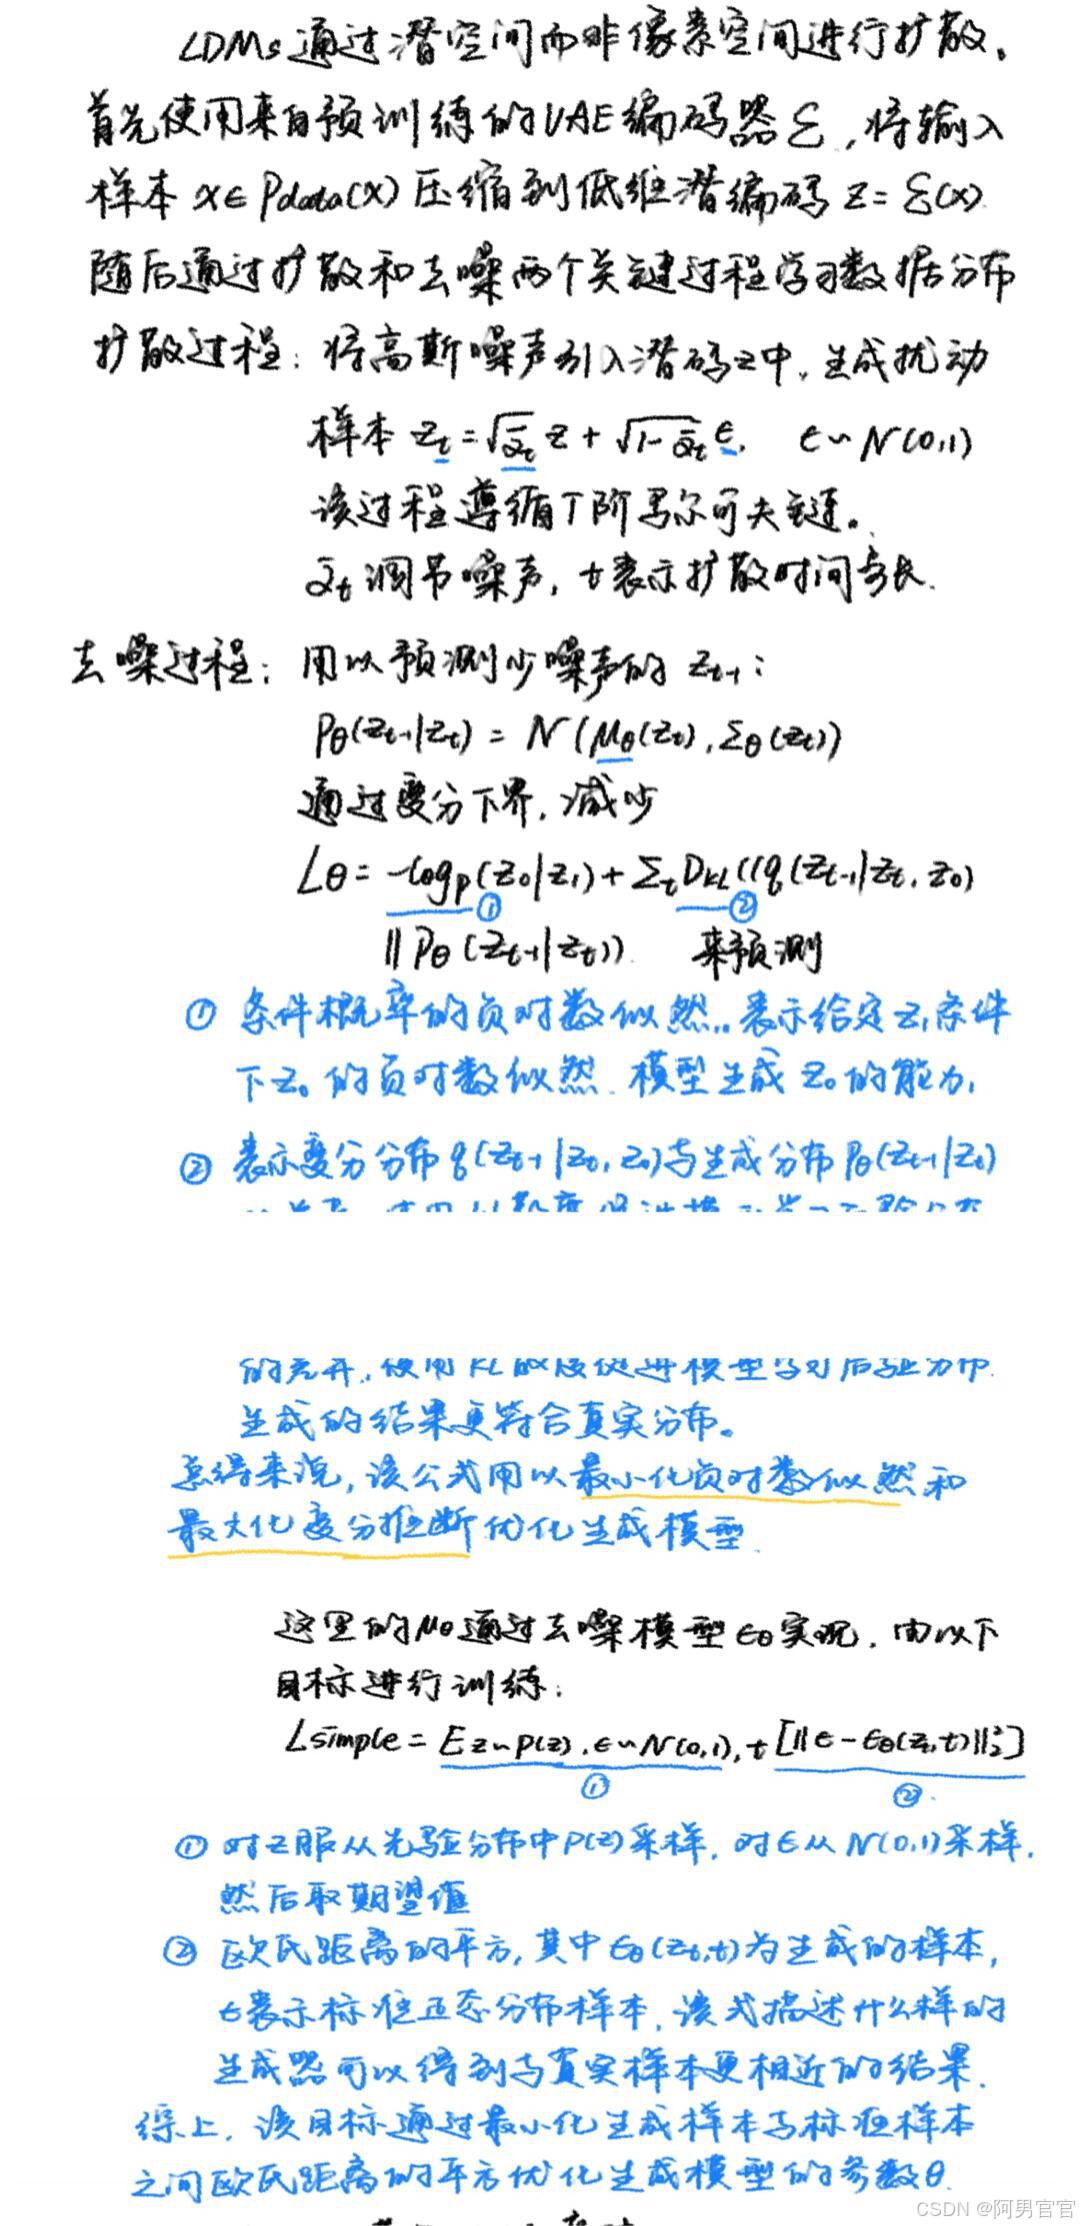 LDMs通过潜空间而非像素空间进行扩散。
首先使用来自预训练的VAE编码器ℰ,将输入
样本 x∈Pdata(x)压缩到低维潜编码 z=ℰ(x)
随后通过扩散和去噪两个关键过程学习数据分布
扩散过程:将高斯噪声引入潜码z中,生成扰动
样本 zₜ=√ᾱₜ z+√1-ᾱₜ ϵ, ϵ~N(0,1)
该过程遵循T阶马尔可夫链。
ᾱₜ调节噪声,t表示扩散时间步长.
去噪过程:用以预测少噪声的 zₜ₋₁:
Pθ(zₜ₋₁|zₜ) = N(μθ(zₜ),Σθ(zₜ))
通过变分下界,减少
Lθ=-logp(z₀|z₁)+Σₜ DKL((q(zₜ₋₁|zₜ,z₀)
① ②
||Pθ(zₜ₋₁|zₜ)). 来预测
① 条件概率的负对数似然,表示给定z₁条件
下z₀的负对数似然.模型生成z₀的能力,
② 表示变分分布q(zₜ₋₁|zₜ,z₀)与生成分布Pθ(zₜ₋₁|zₜ)
的差异,使用KL散度促进模型学习后验分布.
生成的结果更符合真实分布。
总得来说,该公式用以最小化负对数似然和
最大化变分推断优化生成模型.
这里的μθ通过去噪模型ϵθ实现,由以下
目标进行训练:
Lsimple=Ez~P(z),ϵ~N(0,1),t[||ϵ-ϵθ(zₜ,t)||²₂]
① ②.
① 对z服从先验分布中P(z)采样,对ϵ从N(0,1)采样,
然后取期望值
② 欧氏距离的平方,其中ϵθ(zₜ,t)为生成的样本,
ϵ表示标准正态分布样本,该式描述什么样的
生成器可以得到与真实样本更相近的结果.
综上,该目标通过最小化生成样本与标准样本
之间欧氏距离的平方优化生成模型的参数θ.
CSDN @阿男官官